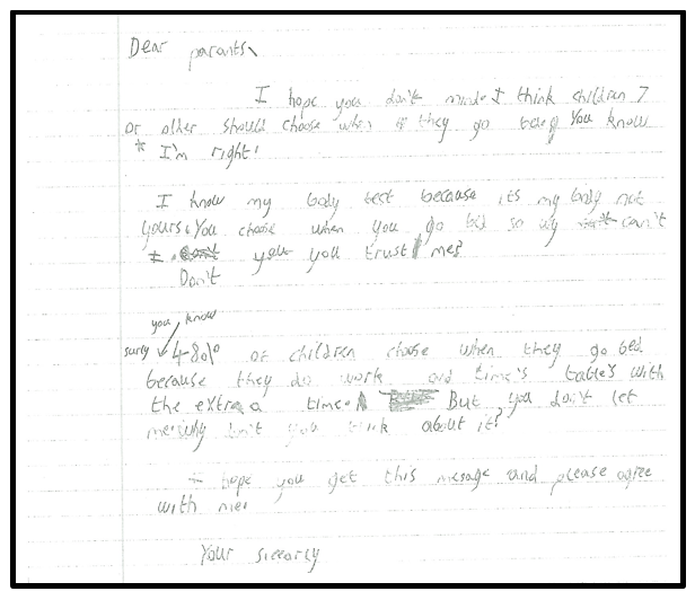 Dear parents,
I hope you don't mind. I think children 7
or other should choose when if they go bed. You know
I'm right!
I know my body best because its my body not
yours. You choose when you go bed so why can't
I. you you trust me?
Don't
you know
surly 48% of children choose when they go bed
because they do work and time's tables with
the extra a time. But you don't let
me. why don't you think about it?
I hope you get this mesage and please agree
with me.
Your siccarly